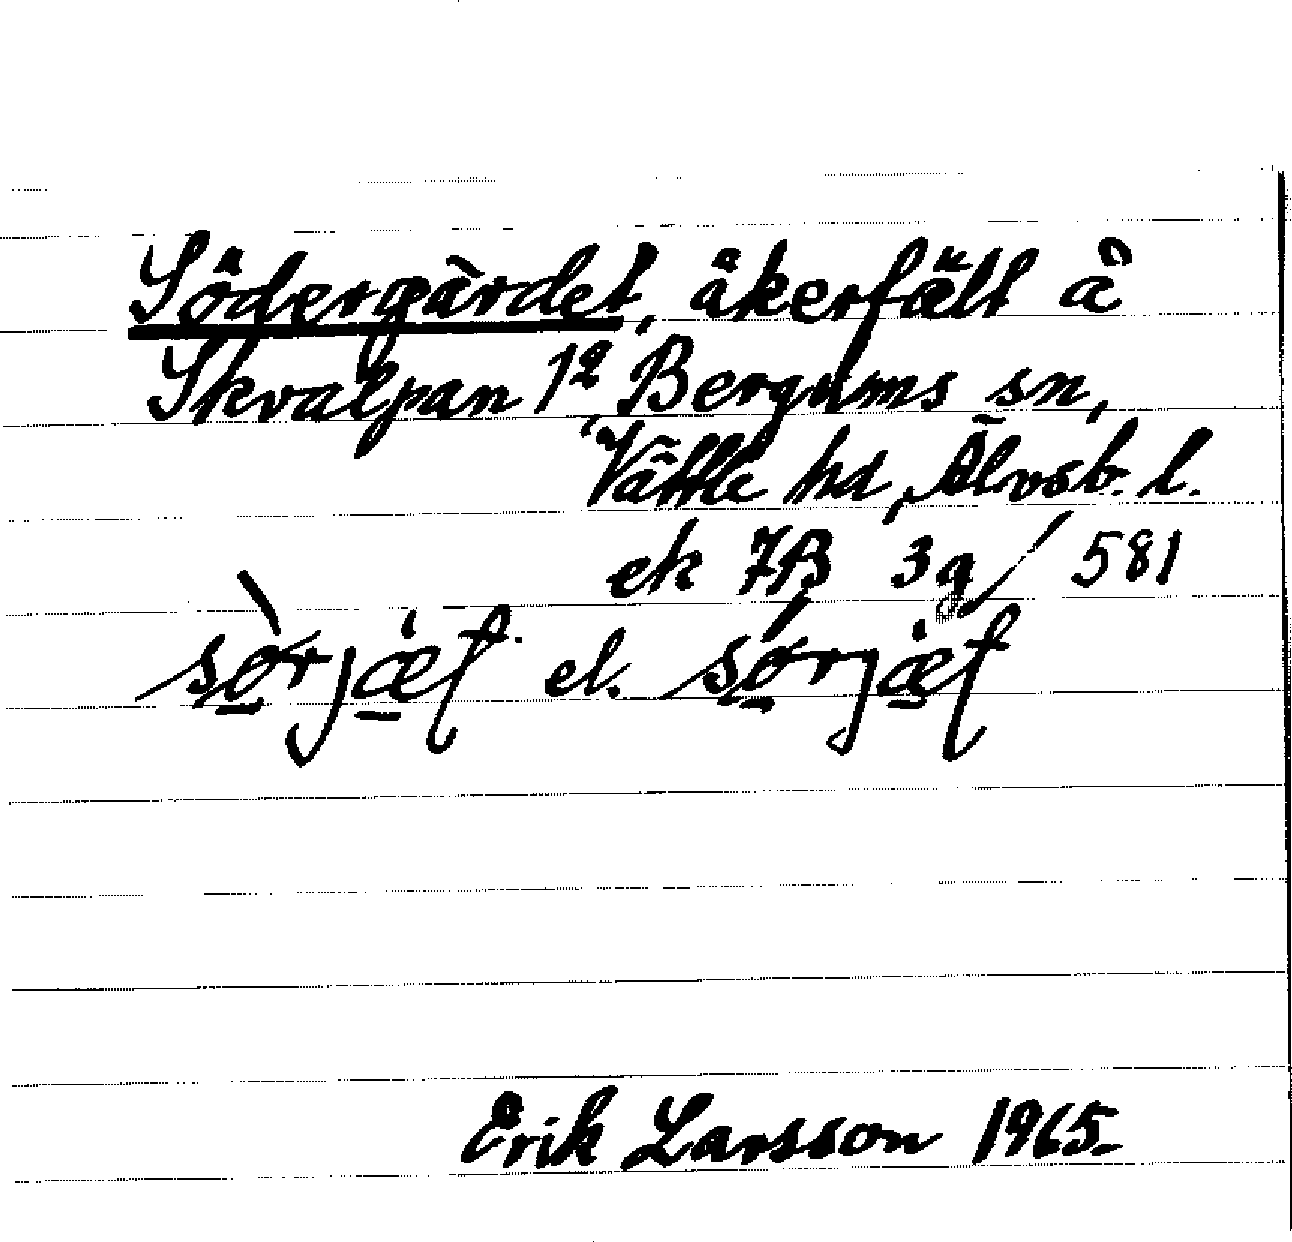 Södergärdet, åkerfält å
Skvalpan 1², Bergums sn,
Vättle hd, Älvsb. l.
ek 7B 3g/581
sörjæt el. sörjæt
Erik Larsson 1965.